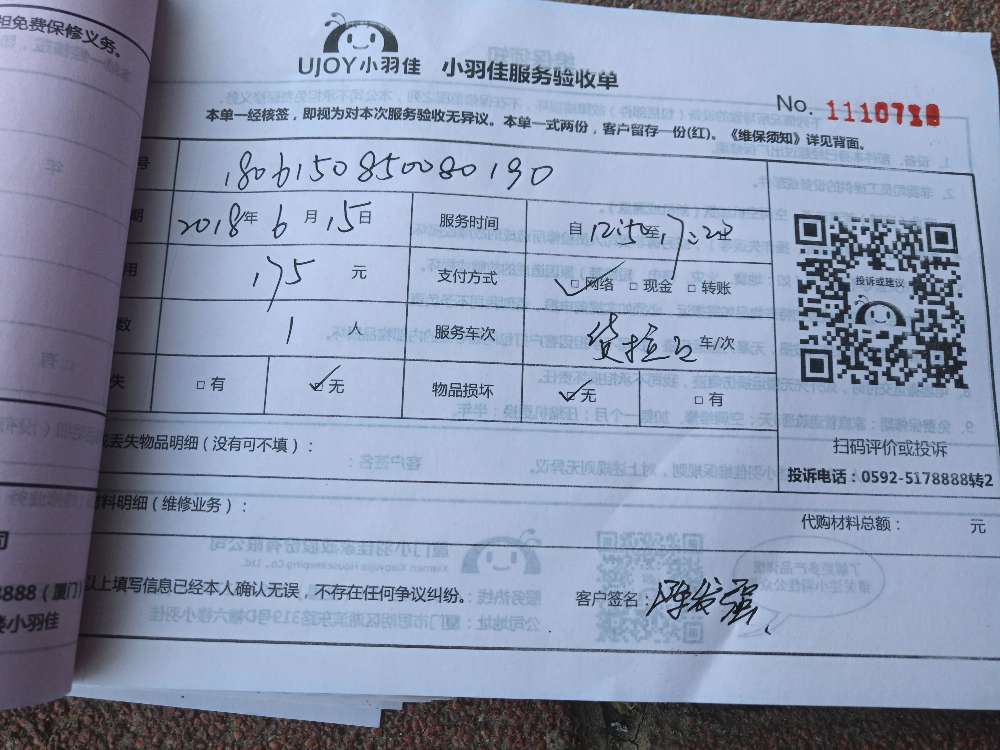 担免费保修义务。
UJOY小羽佳 小羽佳服务验收单
No. 1110718
本单一经核签，即视为对本次服务验收无异议。本单一式两份，客户留存一份(红)。《维保须知》详见背面。
号 1806150850080190
期 2018年6月15日 服务时间 自12:50至17:20
用 175元 支付方式 ☑网络 □现金 □转账
数 1人 服务车次 车/次
失 □有 ☑无 物品损坏 ☑无 □有
投诉或建议
扫码评价或投诉
投诉电话：0592-5178888转2
丢失物品明细（没有可不填）：
料明细（维修业务）：
代购材料总额： 元
司
8888（厦门）
小羽佳
以上填写信息已经本人确认无误，不存在任何争议纠纷。 客户签名：